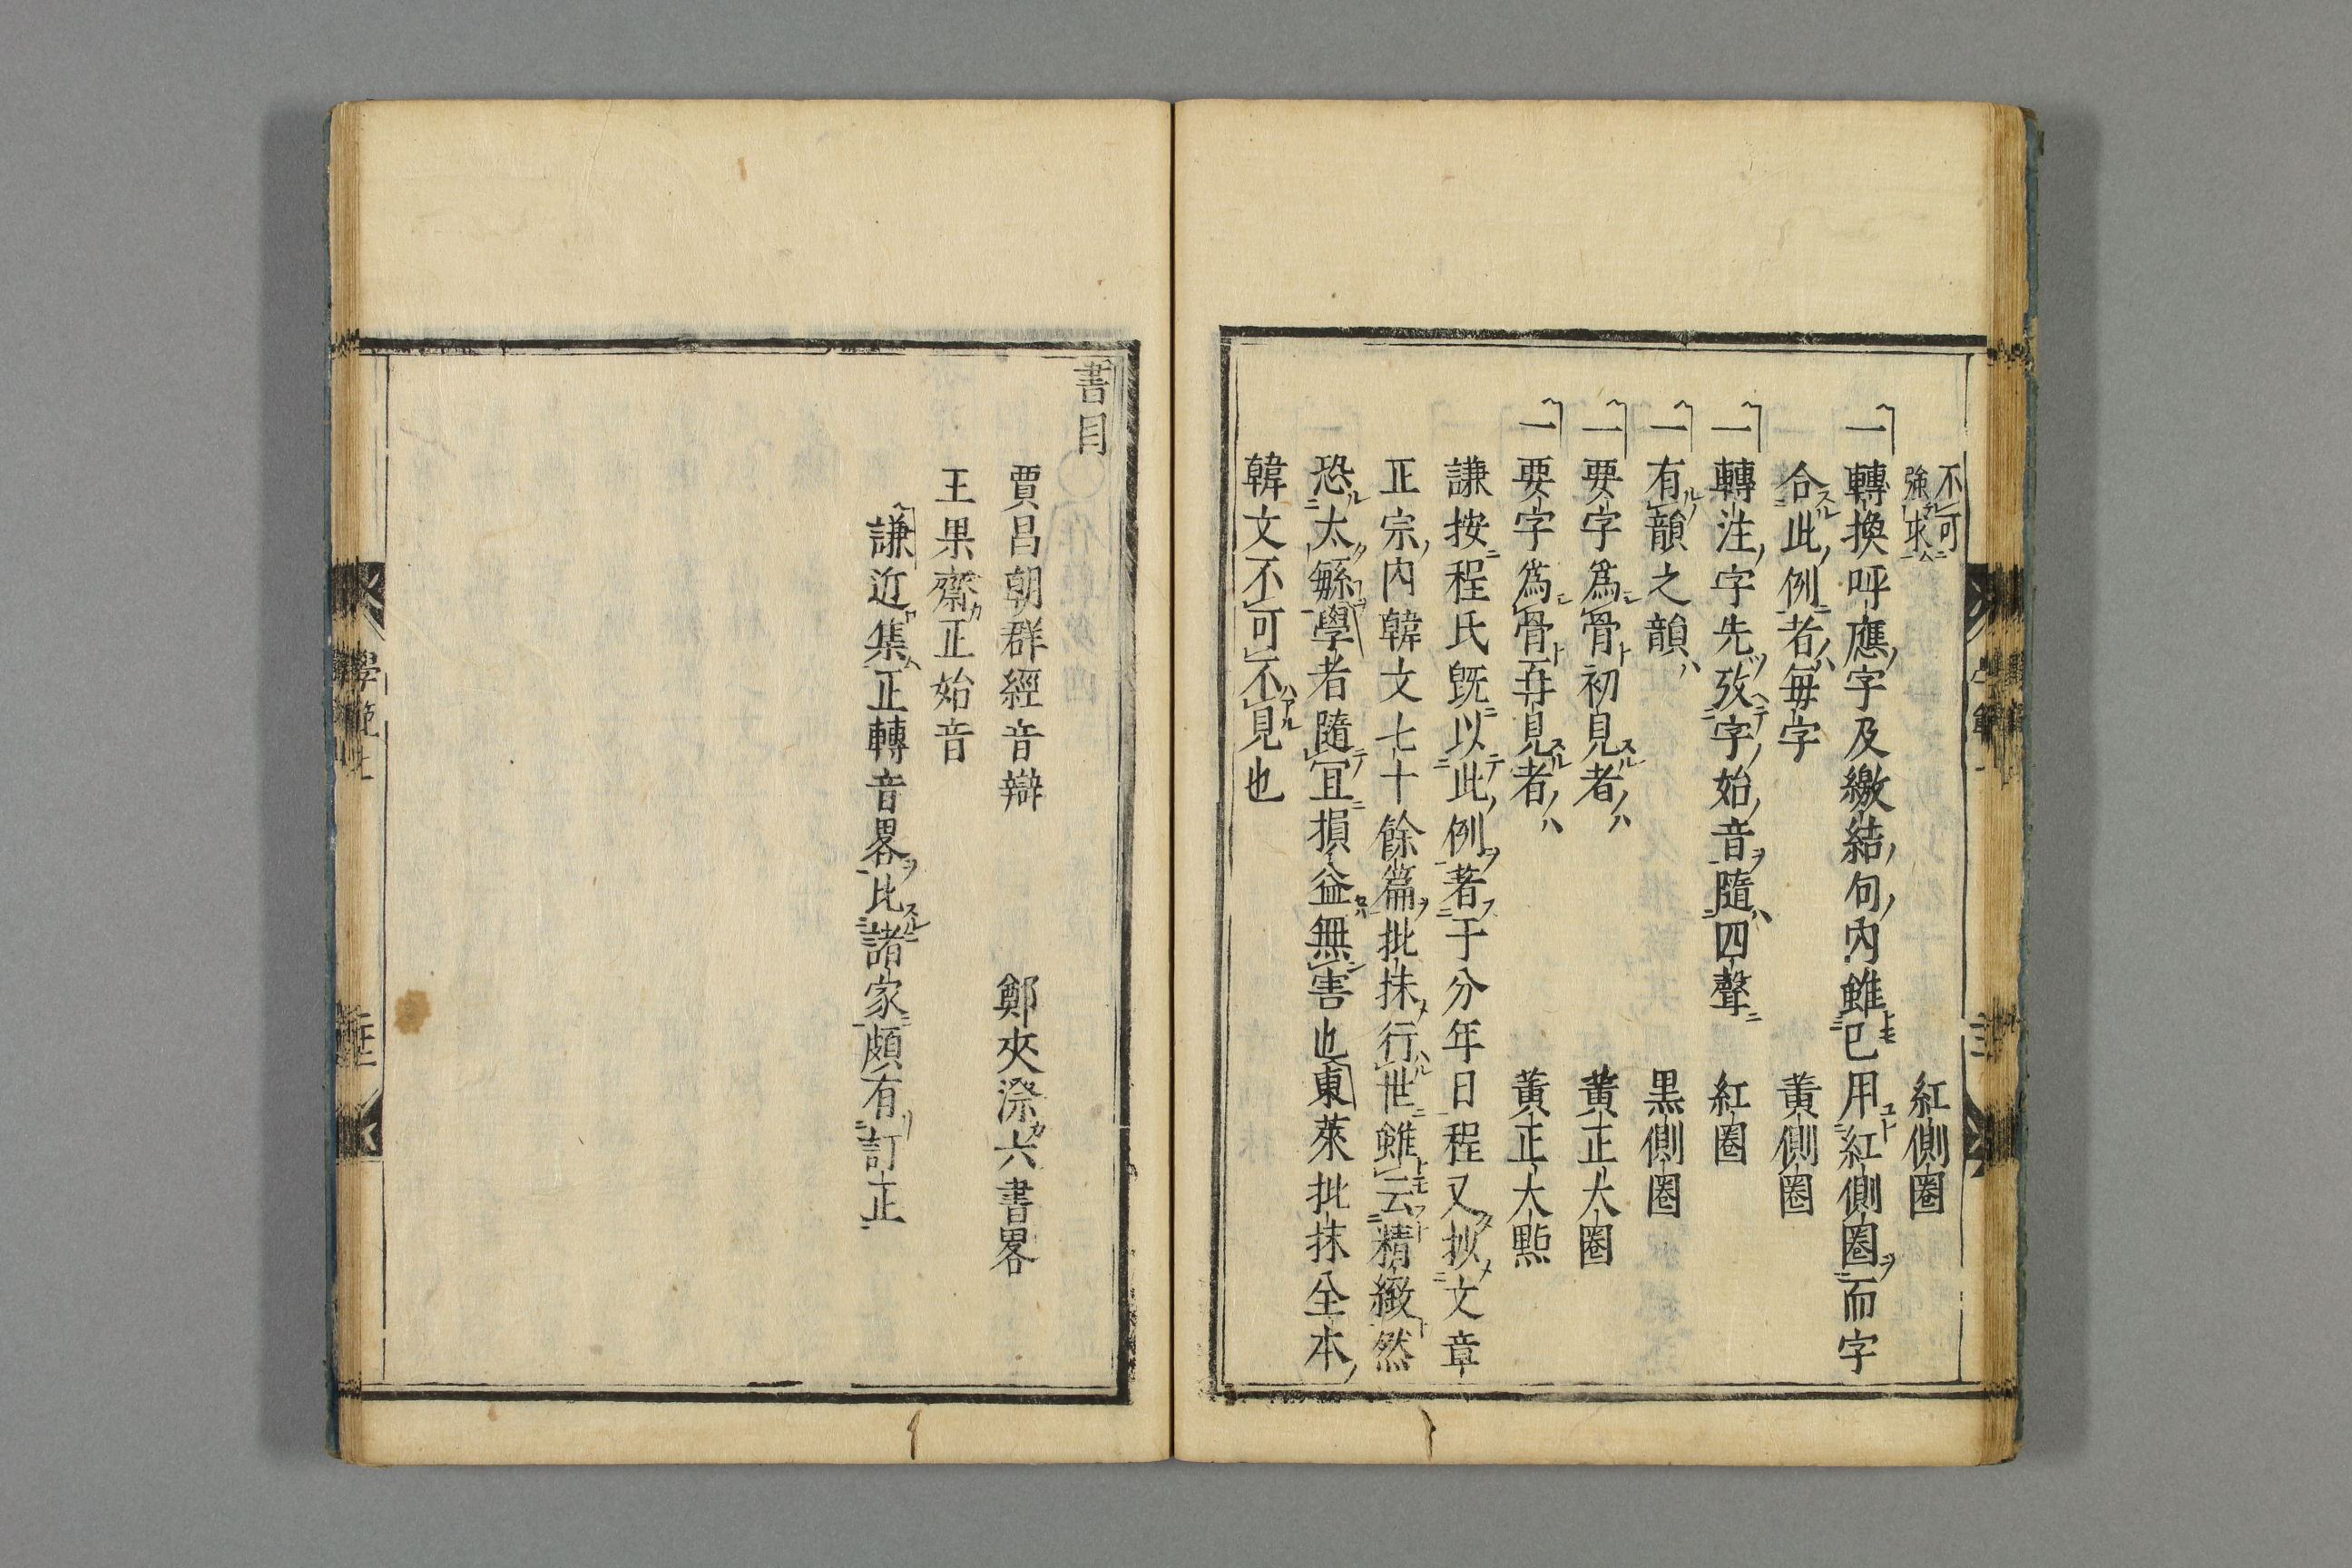 不可強求 紅側圈
一轉換呼應字及繳結句內雖已用紅側圈而字
合此例者每字 黃側圈
一轉注字先攷字始音隨四聲 紅圈
一有韻之韻 黒側圈
一要字爲骨初見者 黃正大圈
一要字爲骨再見者 黃正大點
謙按程氏既以此例著于分年日程又抄文章
正宗內韓文七十餘篇批抹行世雖云精緻然
恐太緐學者隨宜損益無害也東萊批抹全本
韓文不可不見也
書目
賈昌朝群經音辯 鄭夾漈六書畧
王果齋正始音
謙近集正轉音畧比諸家頗有訂正
學範上